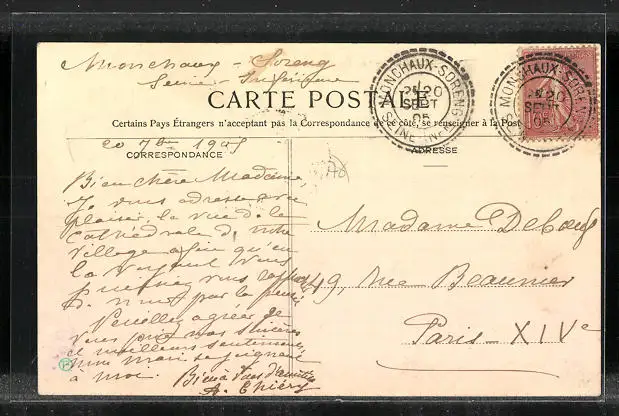 Monchaux - Soreng
Seine - Inférieure
CARTE POSTALE
Certains Pays Étrangers n'acceptant pas la Correspondance de ce côté, se renseigner à la Poste
20 7bre 1905
CORRESPONDANCE
ADRESSE
MONCHAUX-SORENG
20
SEPT
05
SEINE-INFRE
MONCHAUX-SORENG
20
SEPT
05
Bien chère Madame,
Je vous adresse avec
plaisir, la vue de la
Cathédrale de notre
village afin qu'en
la voyant vous
puissiez vous
par la pensée
Veuillez agréer je
vous prie nos sincères
et meilleurs sentiments
mon mari se joignant
à moi. Bien à vous d'amitié
A. Thiéry
Madame Deboeuf
49, rue Beaunier
Paris - XIVe